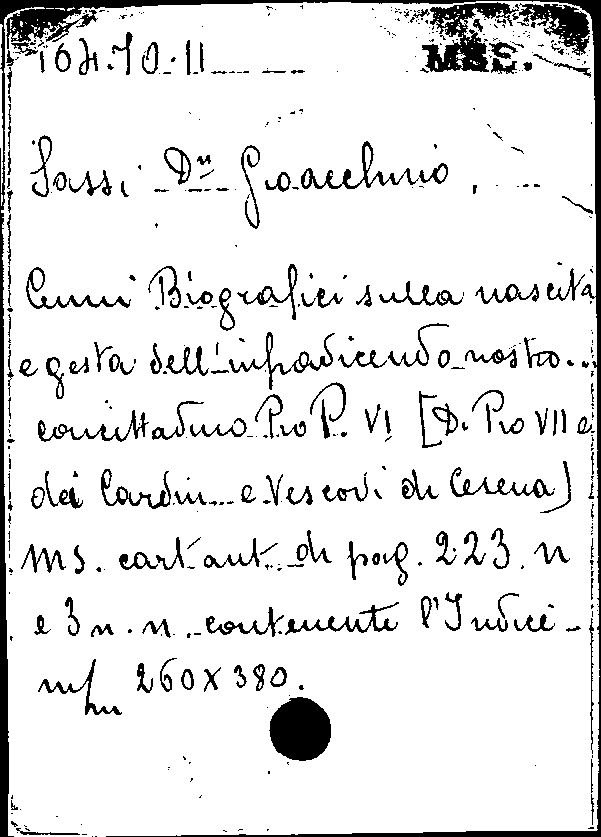 164.70.11 MSS.
Sassi Dn Gioacchino,
Cenni Biografici sulla nascita
e gesta dell'infradicendo nostro...
concittadino Pio P. VI [D. Pio VII e
dei Cardin. e Vescovi di Cesena]
MS. cart. aut. di pag. 223. n
e 3 n. n. contenente l'Indice
260 X 380.